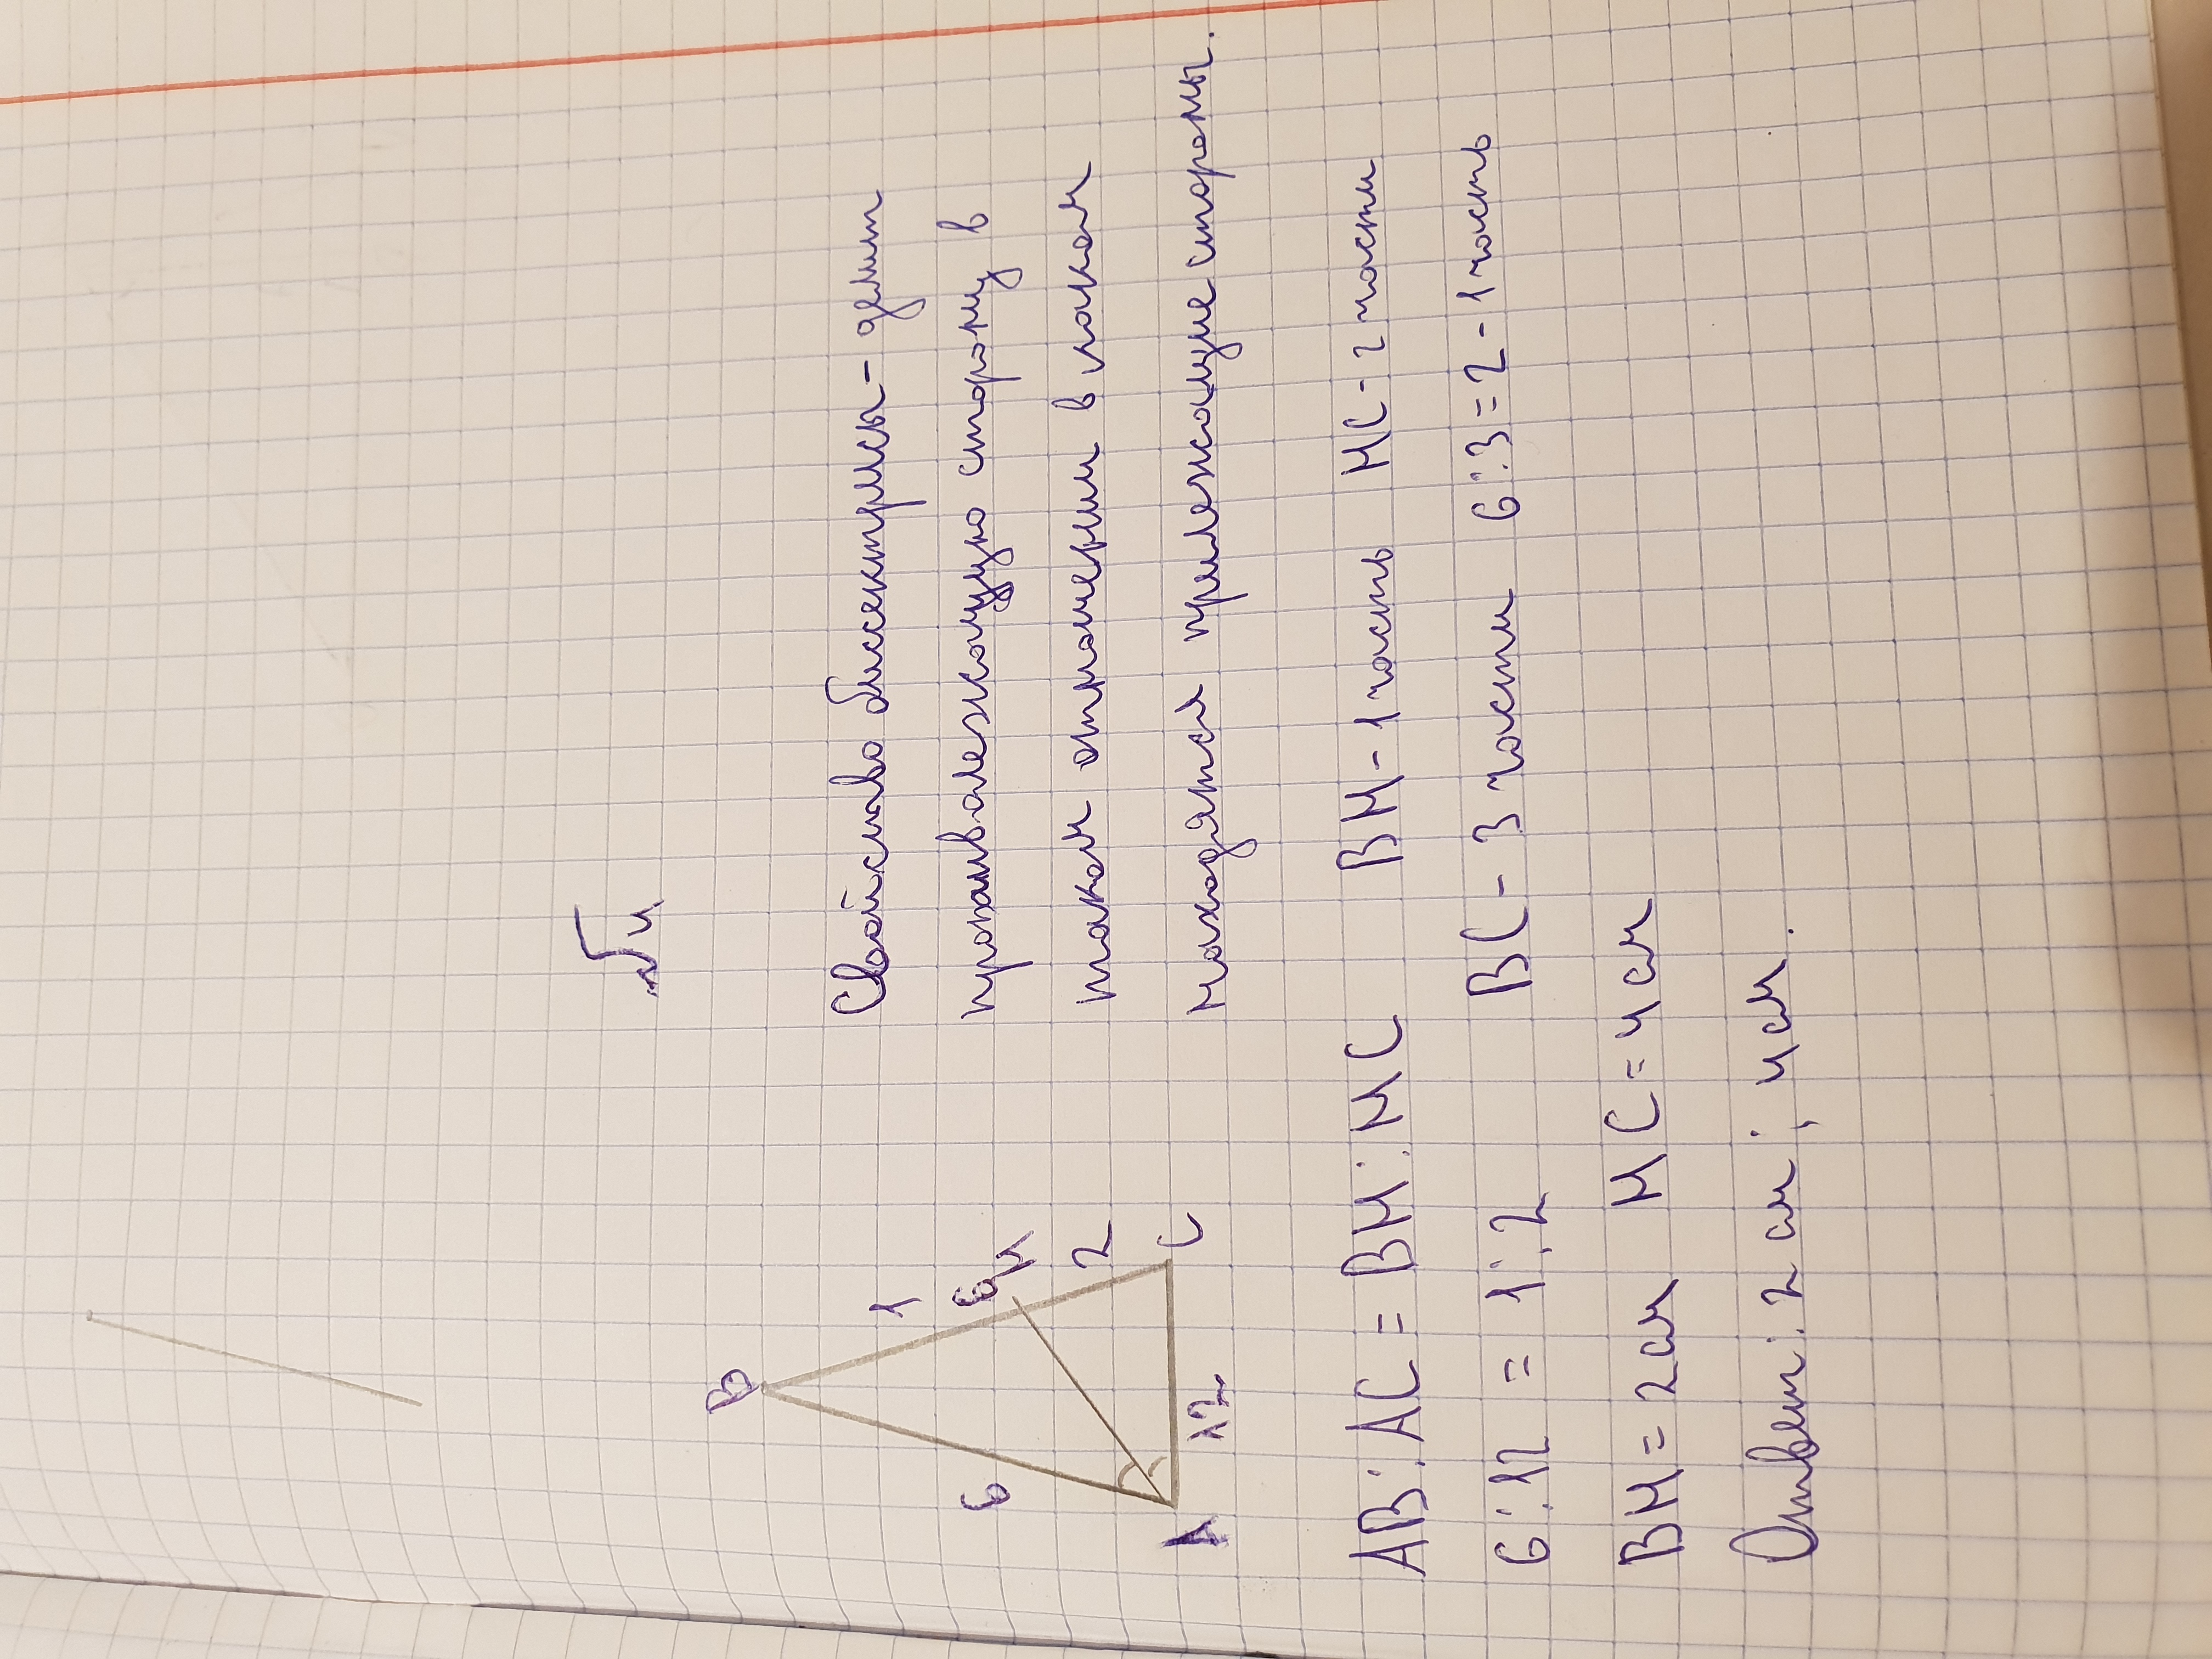 №4
B
Свойство биссектрисы - делит
противолежащую сторону в
таком отношении в каком
находятся прилежащие стороны.
6
1
6
M
2
A
12
C
AB : AC = BM : MC BM - 1 часть MC - 2 части
6 : 12 = 1 : 2 BC - 3 части 6 : 3 = 2 - 1 часть
BM = 2см MC = 4см
Ответ: 2 см ; 4см.